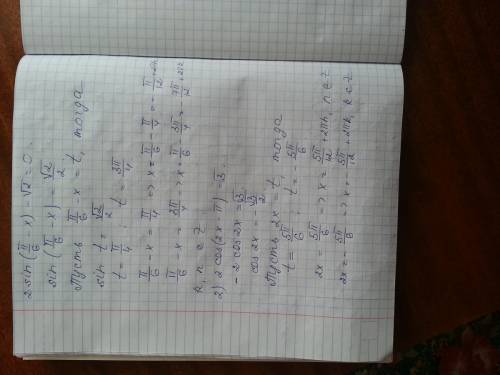 2 sin (π/6 - x) - √2 = 0
sin (π/6 - x) = √2/2
Пусть π/6 - x = t, тогда
sin t = √2/2
t = π/4 ; t = 3π/4
π/6 - x = π/4 => x = π/6 - π/4 = - π/12 + 2πk
π/6 - x = 3π/4 => x = π/6 - 3π/4 = - 7π/12 + 2πn
k, n ∈ Z
2) 2 cos (2x - π) = √3
- 2 cos 2x = √3
cos 2x = - √3/2
Пусть 2x = t, тогда
t = 5π/6 ; t = - 5π/6
2x = 5π/6 => x = 5π/12 + 2πn, n ∈ Z
2x = - 5π/6 => x = - 5π/12 + 2πk, k ∈ Z